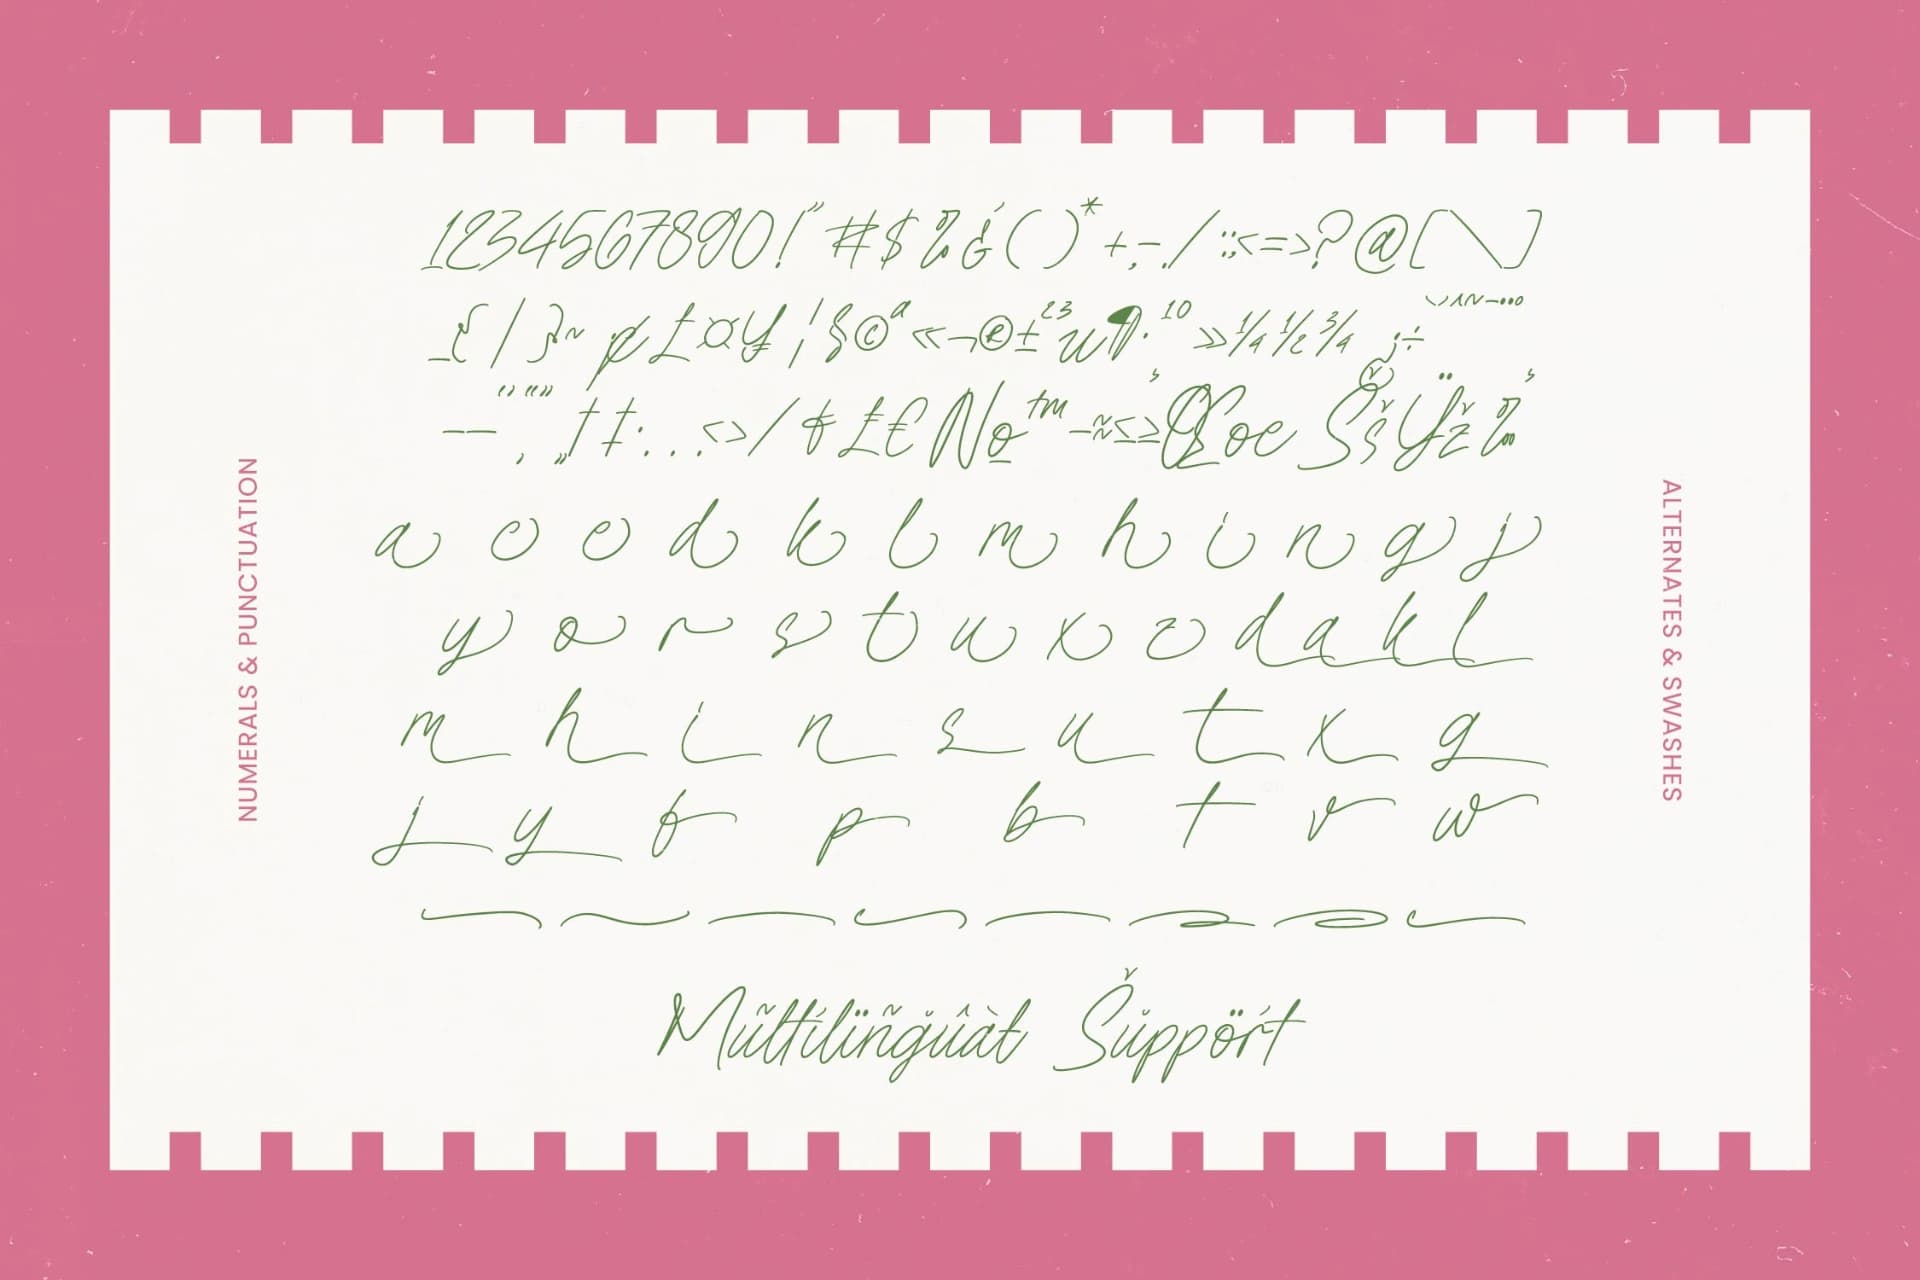 NUMERALS & PUNCTUATION
1234567890!"#$%&'()*+,-./:;<=>?@[\]
_{|}~¢£¤¥¦§©ª«¬®±²³µ¶·¹º»¼½¾
–—''""‚„†‡•...‹›/₤€№™−≈≤≥Œœ ŠšŸž‰
a c e d k l m h i n g j
y o r s t u x z d a k l
m h i n s u t x g
j y f p b t v w
Mũltílïñğûàł Šüppört
ALTERNATES & SWASHES